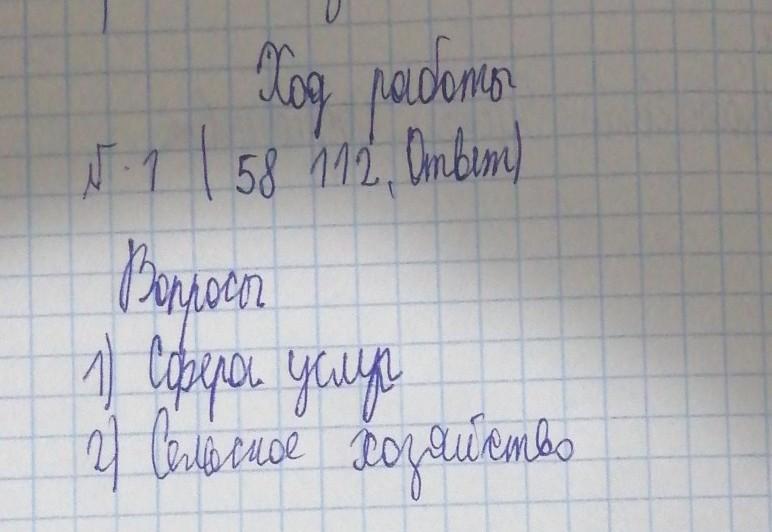 Ход работы
№ 1 ( 58 112, Ответ)
Вопросы
1) Сфера услуг
2) Сельское хозяйство